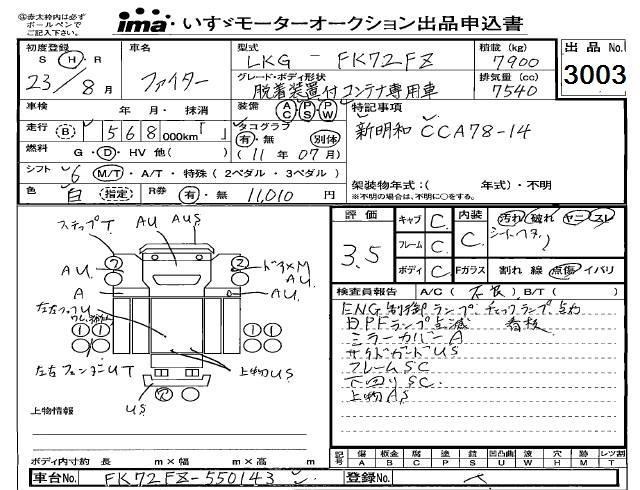 ◎赤太枠内は必ずボールペンでご記入下さい。
ima いすゞモーターオークション出品申込書
初度登録 S H R 23/8月
車名 ファイター
型式 LKG - FK72FZ
積載(kg) 7900
出品No. 3003
グレード・ボディ形状 脱着装置付コンテナ専用車
排気量(cc) 7540
車検 年 月・抹消
装備 AC PS PW
特記事項
走行 B 568 000km「 」
タコグラフ 有・無 別体
新明和 CCA78-14
燃料 G・D・HV 他( )
(11年07月)
シフト 6 M/T・A/T・特殊(2ペダル・3ペダル)
架装物年式:( 年式)・不明
※不明の場合は、不明に○をする。
色 白 指定 R券 有・無 11,010円
評価 3.5
キャブ C
フレーム C
ボディ C
内装 C
汚れ 破れ ヤニ スレ
シートヘタリ
Fガラス 割れ 線 点傷 イバリ
検査員報告 A/C(不良)B/T( )
ENG制御ランプ チェックランプ点灯
DPFランプ点滅 看板
ミラーカバーA
サイドガードUS
フレームSC
下回りSC
上物AS
ステップT AU AUS
AU ドアXM
A AU
AU
左右フェンダーUT
上物US
US
上物情報
ボディ内寸約 長 m×幅 m×高 m
記号 傷 A 板金 B 腐 C 塗 P 錆 S 凹凸曲 U 波 W 穴 H 跡 M レツ割 T
車台No. FK72FZ-550143
登録No.